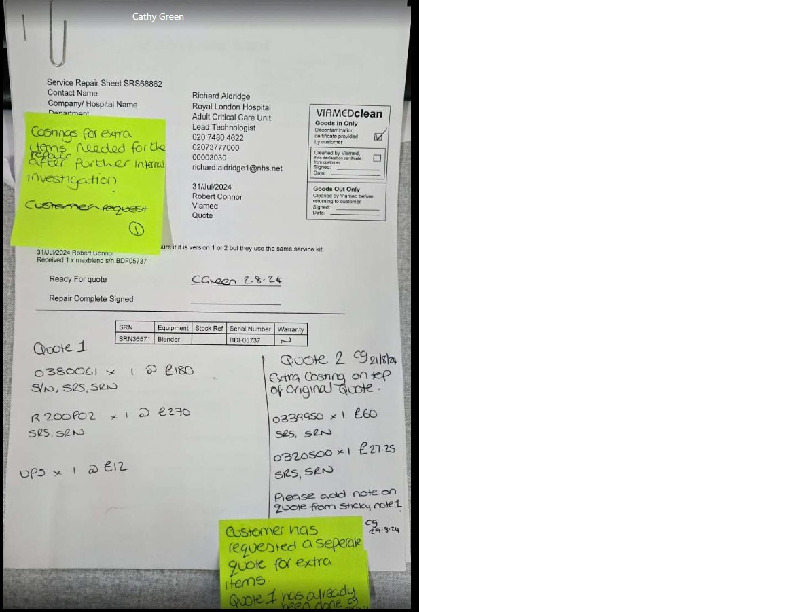 Cathy Green
Service Repair Sheet SRS68862
Contact Name
Company/ Hospital Name
Department
Richard Aldridge
Royal London Hospital
Adult Critical Care Unit
Lead Technologist
020 7480 4622
02073777000
00003030
richard.aldridge1@nhs.net
31/Jul/2024
Robert Connor
Viamed
Quote
VIAMEDclean
Goods In Only
Decontamination
certificate provided
by customer
Cleaned by Viamed,
Signed:
Date:
Goods Out Only
Cleaned by Viamed before
returning to customer
Signed:
Date:
Costings for extra
items needed for the
repair
after further internal
investigation
Customer request
1
if it is version 1 or 2 but they use the same service kit
31/Jul/2024 Robert Connor
Received 1 x maxblend s/n BDF05737
Ready For quote
CGreen 2.8.24
Repair Complete Signed
SRN Equipment Stock Ref Serial Number Warranty
Blender
Quote 1
0380061 x 1 @ £180
S/N, SRS, SRN
R200P02 x 1 @ £270
SRS, SRN
UPS x 1 @ £12
Quote 2 CG 21/8/24
Extra Costing on top
of original quote.
0339950 x 1 £60
SRS, SRN
0320500 x 1 £27.25
SRS, SRN
Please add note on
quote from sticky note 1
CG
Customer has
requested a seperate
quote for extra
items
Quote 1 has already
been done